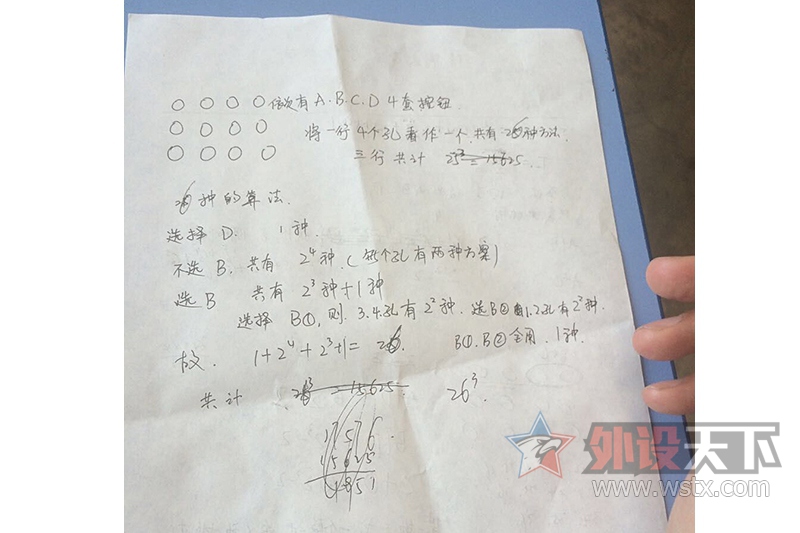 依次有A.B.C.D 4套按钮
将一行4个孔看作一个,共有26种方法.
三行共计 25³=15625
26种的算法.
选择D. 1种.
不选B.共有 2⁴种.(每个孔有两种方案)
选B 共有 2³种+1种
选择 B①,则.3.4.孔有2²种.选B②有1.2孔有2²种.
B①.B②全用.1种.
故. 1+2⁴+2³+1= 26.
共计 26³ =15625. 26³.
17576.
15625
1951
外设天下
www.wstx.com